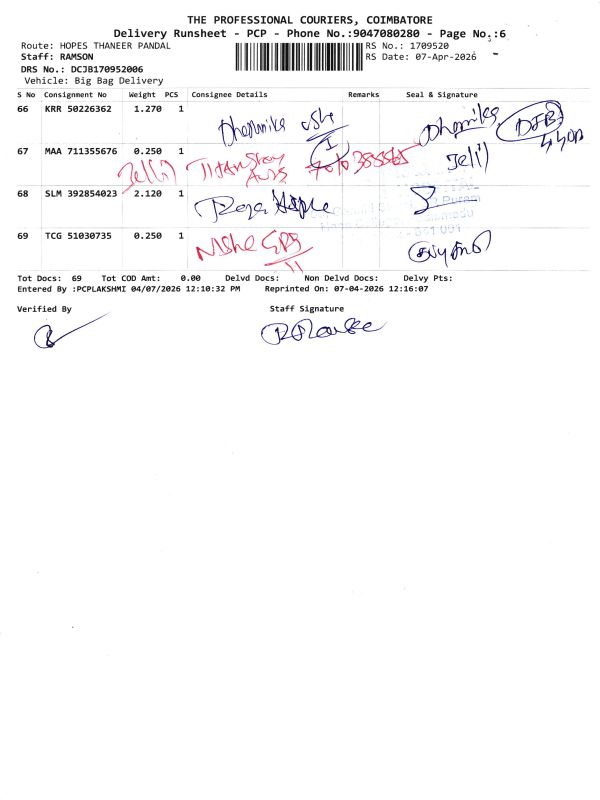 THE PROFESSIONAL COURIERS, COIMBATORE
Delivery Runsheet - PCP - Phone No.:9047080280 - Page No.:6
Route: HOPES THANEER PANDAL
RS No.: 1709520
Staff: RAMSON
RS Date: 07-Apr-2026
DRS No.: DCJB170952006
Vehicle: Big Bag Delivery
S No Consignment No Weight PCS Consignee Details Remarks Seal & Signature
66 KRR 50226362 1.270 1
Dhanmika Dhanmika
67 MAA 711355676 0.250 1
Jelli) Titan Jeli)
68 SLM 392854023 2.120 1
Puram
Roja
641 001
69 TCG 51030735 0.250 1
Nisha
Tot Docs: 69 Tot COD Amt: 0.00 Delvd Docs: Non Delvd Docs: Delvy Pts:
Entered By :PCPLAKSHMI 04/07/2026 12:10:32 PM Reprinted On: 07-04-2026 12:16:07
Verified By Staff Signature